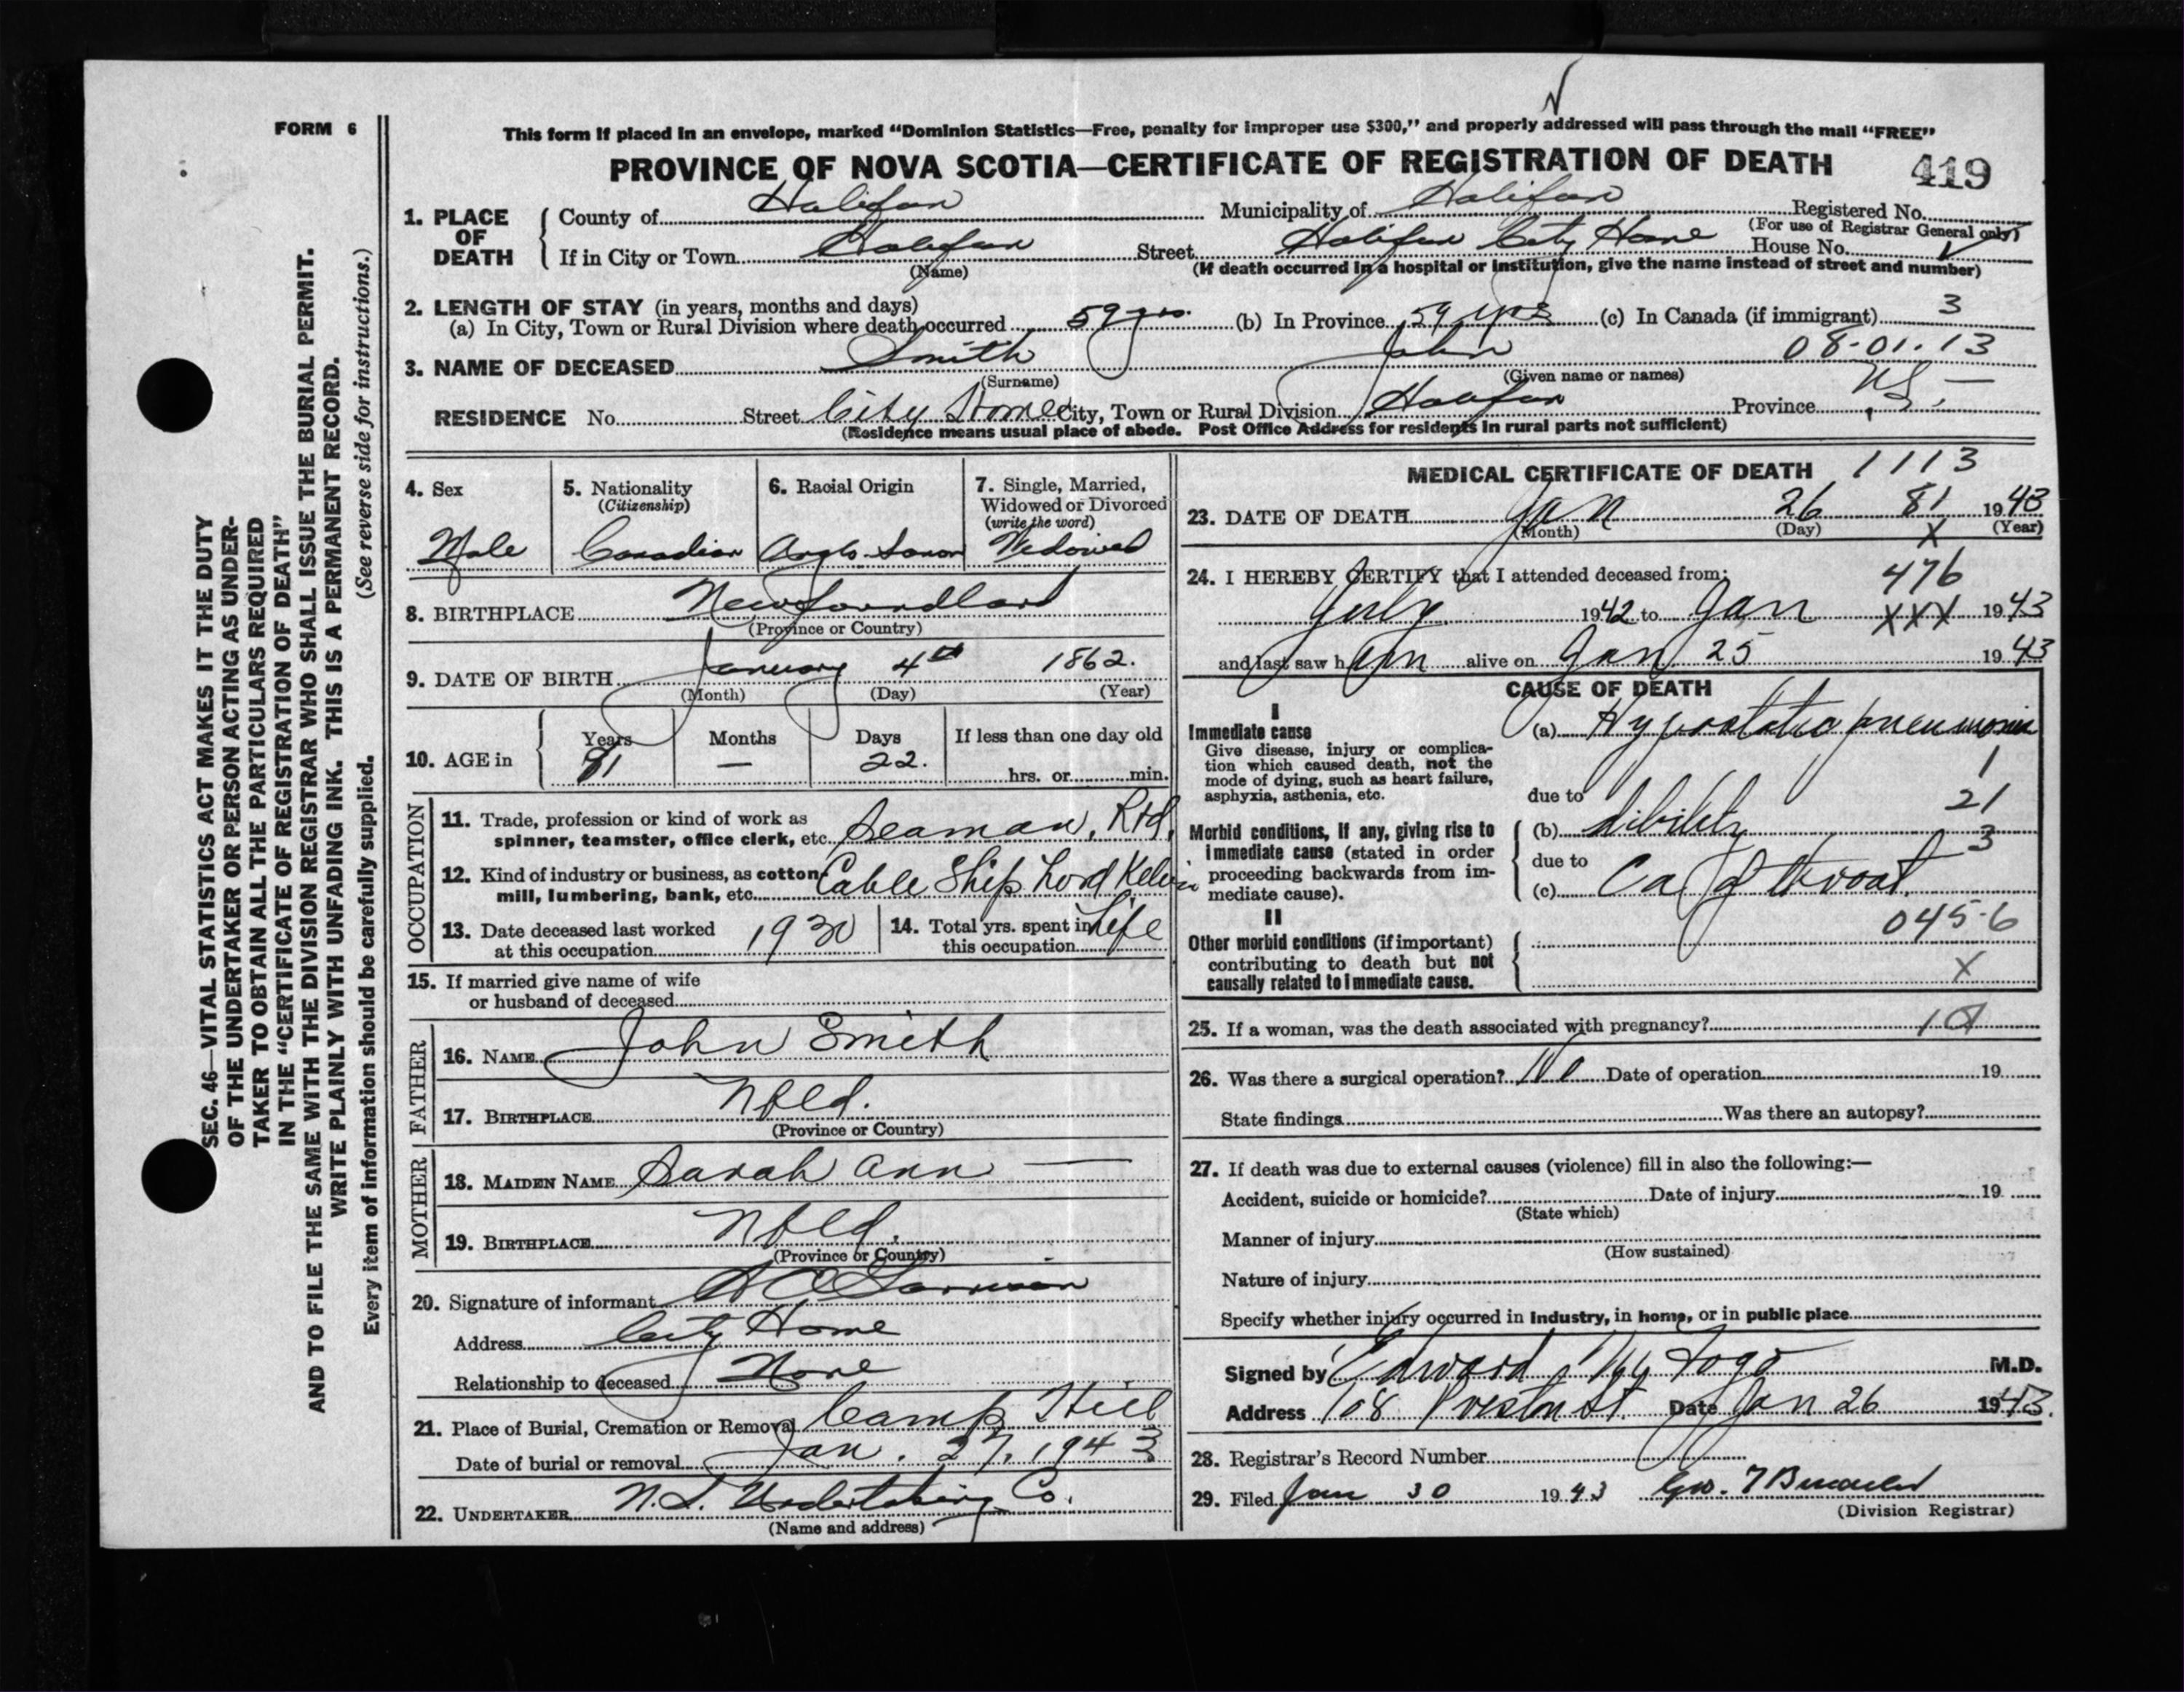 FORM 6
This form if placed in an envelope, marked "Dominion Statistics—Free, penalty for improper use $300," and properly addressed will pass through the mail "FREE"
PROVINCE OF NOVA SCOTIA—CERTIFICATE OF REGISTRATION OF DEATH 419
1. PLACE OF DEATH
County of Halifax Municipality of Halifax Registered No.
(For use of Registrar General only)
If in City or Town Halifax Street Halifax City Home House No.
(Name) (If death occurred in a hospital or institution, give the name instead of street and number)
2. LENGTH OF STAY (in years, months and days)
(a) In City, Town or Rural Division where death occurred 59 yrs. (b) In Province 59 yrs (c) In Canada (if immigrant) 3
3. NAME OF DECEASED Smith John 08-01-13
(Surname) (Given name or names)
RESIDENCE No. Street City Home City, Town or Rural Division Halifax Province N.S.
(Residence means usual place of abode. Post Office Address for residents in rural parts not sufficient)
4. Sex
Male
5. Nationality
(Citizenship)
Canadian
6. Racial Origin
Anglo-Saxon
7. Single, Married,
Widowed or Divorced
(write the word)
Widowed
8. BIRTHPLACE Newfoundland
(Province or Country)
9. DATE OF BIRTH January 4th 1862.
(Month) (Day) (Year)
10. AGE in
Years Months Days If less than one day old
81 — 22. hrs. or min.
OCCUPATION
11. Trade, profession or kind of work as
spinner, teamster, office clerk, etc. Seaman, Rtd.
12. Kind of industry or business, as cotton
mill, lumbering, bank, etc. Cable Ship Lord Kelvin
13. Date deceased last worked
at this occupation 1930
14. Total yrs. spent in
this occupation Life
15. If married give name of wife
or husband of deceased
FATHER
16. NAME John Smith
17. BIRTHPLACE Nfld.
(Province or Country)
MOTHER
18. MAIDEN NAME Sarah Ann —
19. BIRTHPLACE Nfld.
(Province or Country)
20. Signature of informant
Address City Home
Relationship to deceased None
21. Place of Burial, Cremation or Removal Camp Hill
Date of burial or removal Jan. 27, 1943
22. UNDERTAKER N.S. Undertaking Co.
(Name and address)
MEDICAL CERTIFICATE OF DEATH 1113
23. DATE OF DEATH Jan 26 81 1943
(Month) (Day) X (Year)
24. I HEREBY CERTIFY that I attended deceased from: 476
July 1942 to Jan XXX 1943
and last saw him alive on Jan 25 1943
CAUSE OF DEATH
I
Immediate cause
Give disease, injury or complica-
tion which caused death, not the
mode of dying, such as heart failure,
asphyxia, asthenia, etc.
(a) Hypostatic pneumonia
1
due to 21
Morbid conditions, if any, giving rise to
immediate cause (stated in order
proceeding backwards from im-
mediate cause).
(b) dibility 3
due to
(c) Ca of throat
II
Other morbid conditions (if important)
contributing to death but not
causally related to immediate cause.
045-6
X
25. If a woman, was the death associated with pregnancy?
26. Was there a surgical operation? No Date of operation 19
State findings Was there an autopsy?
27. If death was due to external causes (violence) fill in also the following:—
Accident, suicide or homicide? Date of injury 19
(State which)
Manner of injury
(How sustained)
Nature of injury
Specify whether injury occurred in industry, in home, or in public place
Signed by Edward Fogo M.D.
Address 108 Preston St. Date Jan 26 1943.
28. Registrar's Record Number
29. Filed Jan 30 1943 Geo.
(Division Registrar)
SEC. 46—VITAL STATISTICS ACT MAKES IT THE DUTY
OF THE UNDERTAKER OR PERSON ACTING AS UNDER-
TAKER TO OBTAIN ALL THE PARTICULARS REQUIRED
IN THE "CERTIFICATE OF REGISTRATION OF DEATH"
AND TO FILE THE SAME WITH THE DIVISION REGISTRAR WHO SHALL ISSUE THE BURIAL PERMIT.
WRITE PLAINLY WITH UNFADING INK. THIS IS A PERMANENT RECORD.
Every item of information should be carefully supplied. (See reverse side for instructions.)